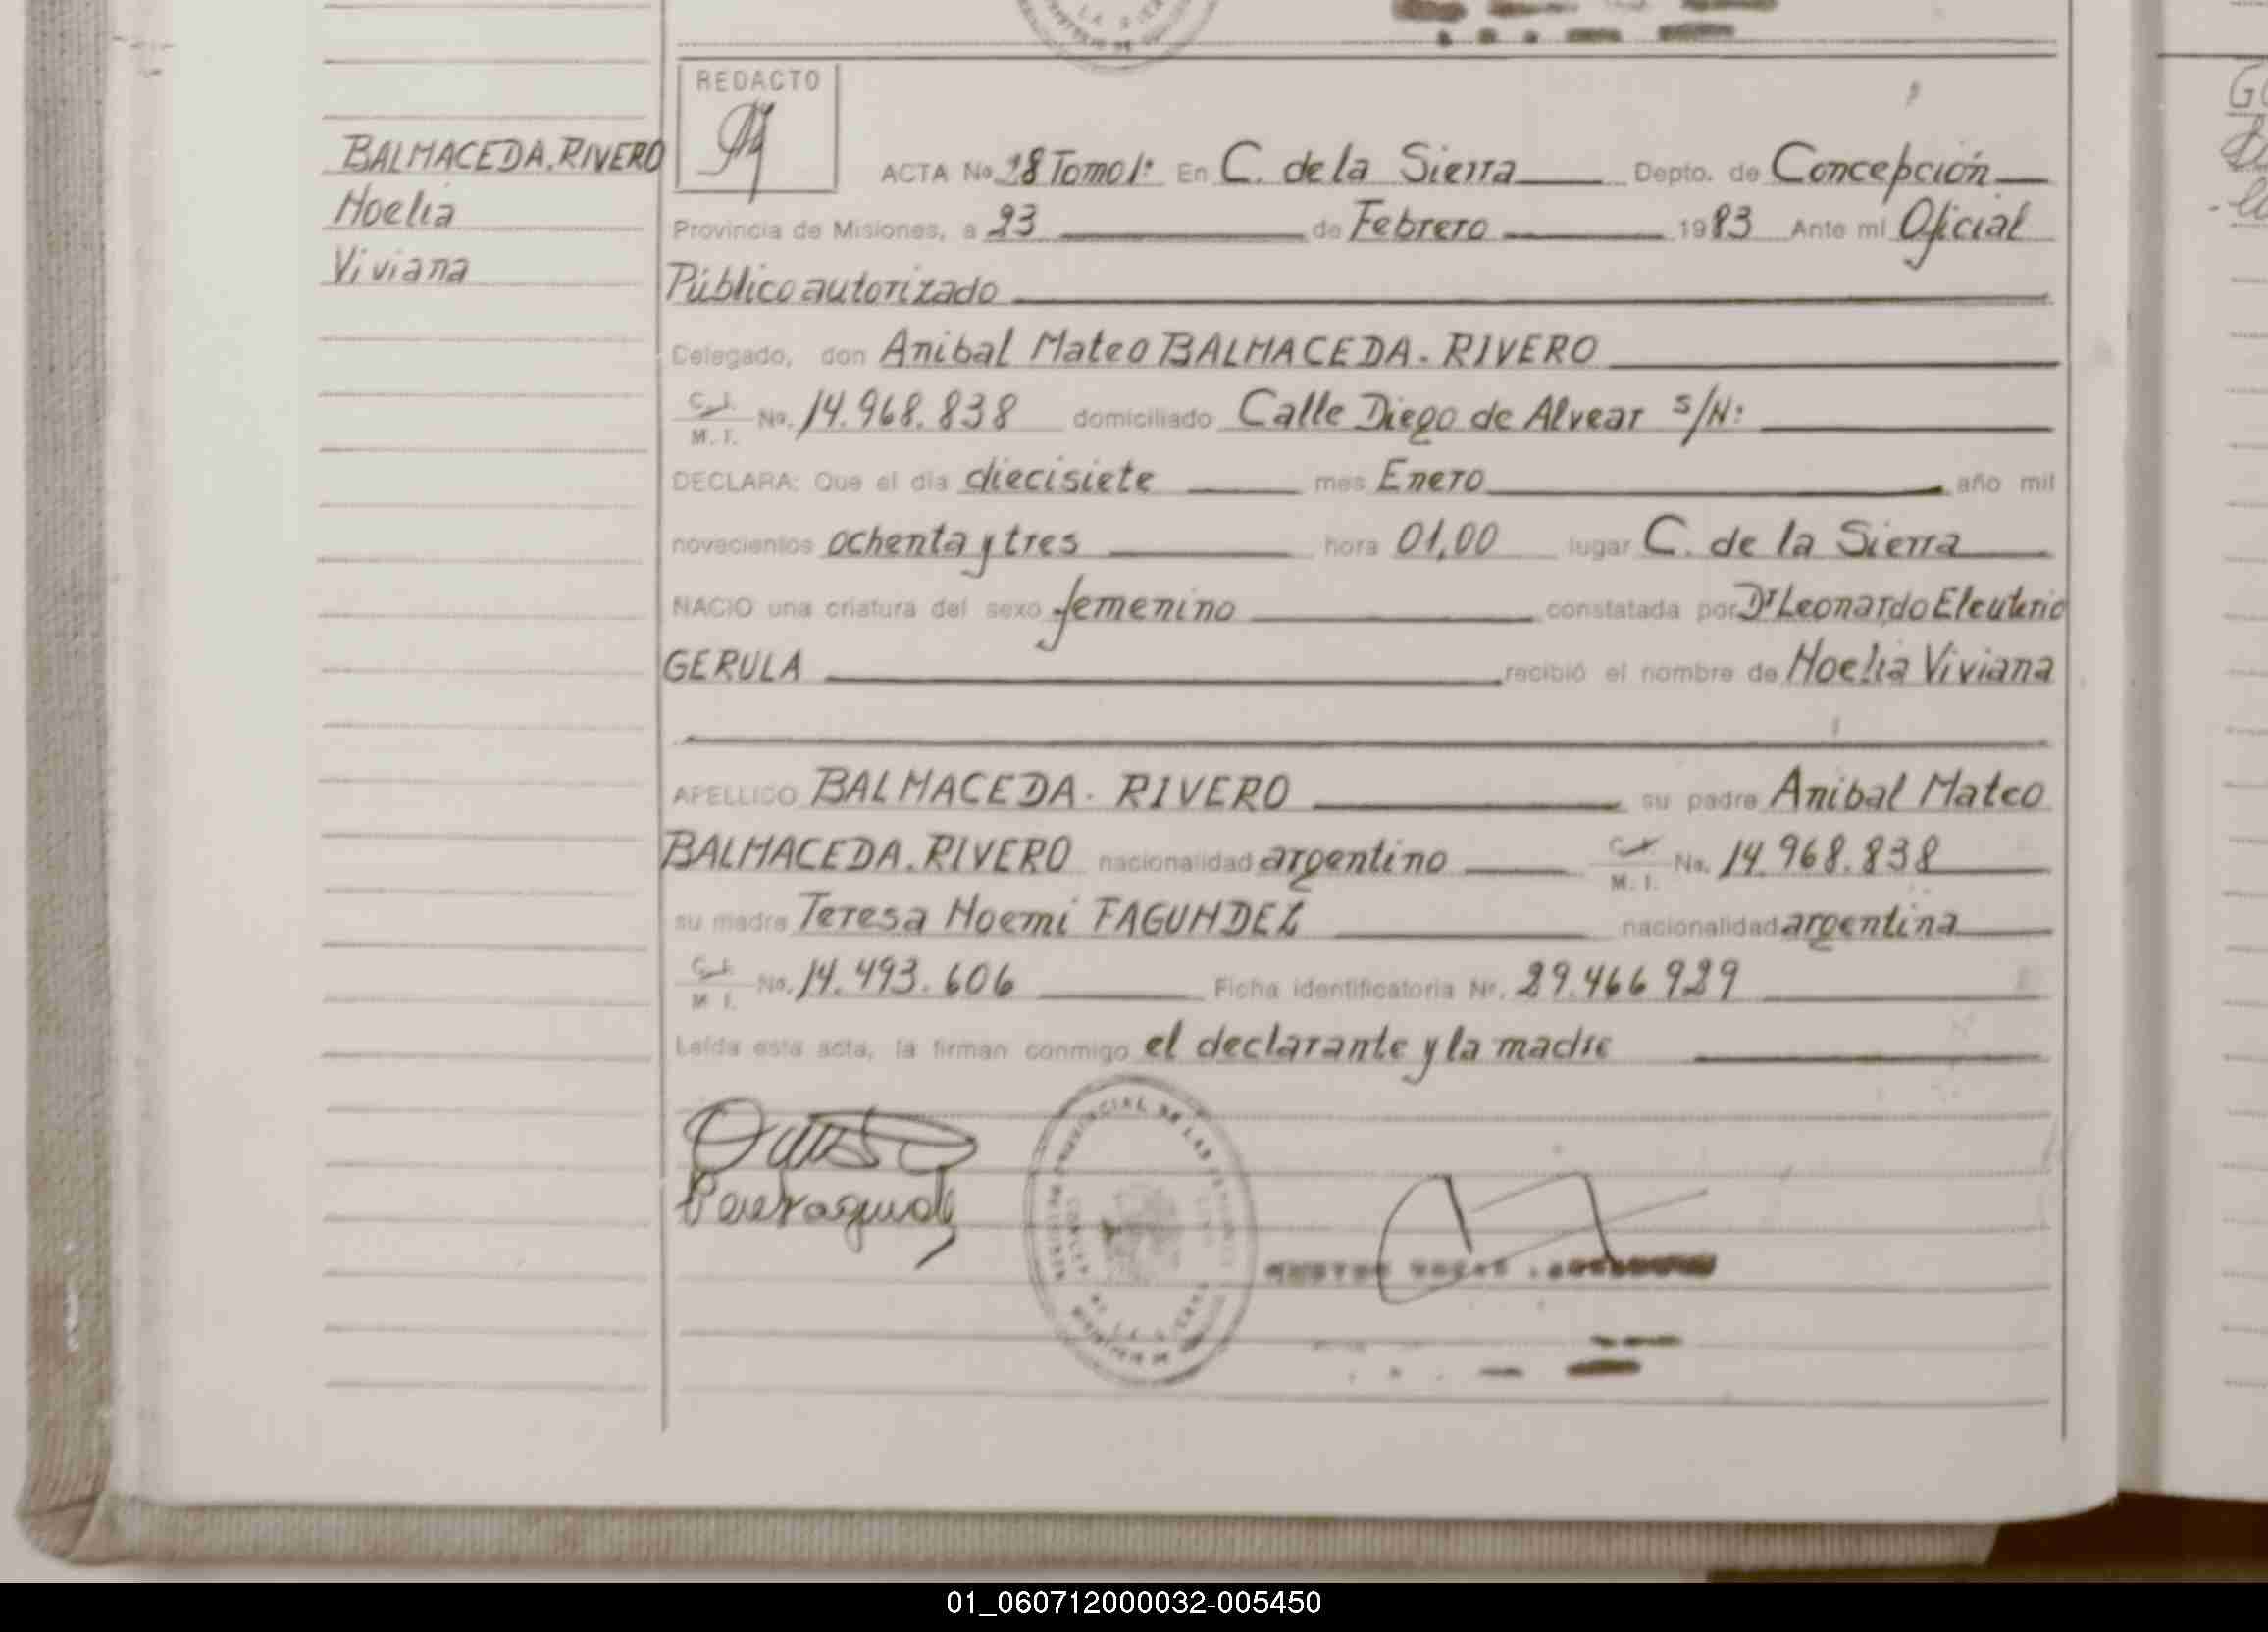 REDACTO
BALMACEDA.RIVERO
Noelia
Viviana
ACTA No 28 Tomo 1º En C. de la Sierra Depto. de Concepción
Provincia de Misiones, a 23 de Febrero 1983 Ante mi Oficial
Público autorizado
Delegado, don Anibal Mateo BALMACEDA. RIVERO
C.I. M.I. No. 14.968.838 domiciliado Calle Diego de Alvear S/Nº
DECLARA: Que el día diecisiete mes Enero año mil
novecientos ochenta y tres hora 01,00 lugar C. de la Sierra
NACIO una criatura del sexo femenino constatada por Dr Leonardo Eleuterio
GERULA recibió el nombre de Noelia Viviana
APELLIDO BALMACEDA. RIVERO su padre Anibal Mateo
BALMACEDA.RIVERO nacionalidad argentino C.I. M.I. No. 14.968.838
su madre Teresa Noemí FAGUNDEZ nacionalidad argentina
C.I. M.I. No. 14.493.606 Ficha identificatoria Nº. 29.466 929
Leída esta acta, la firman conmigo el declarante y la madre
01_060712000032-005450